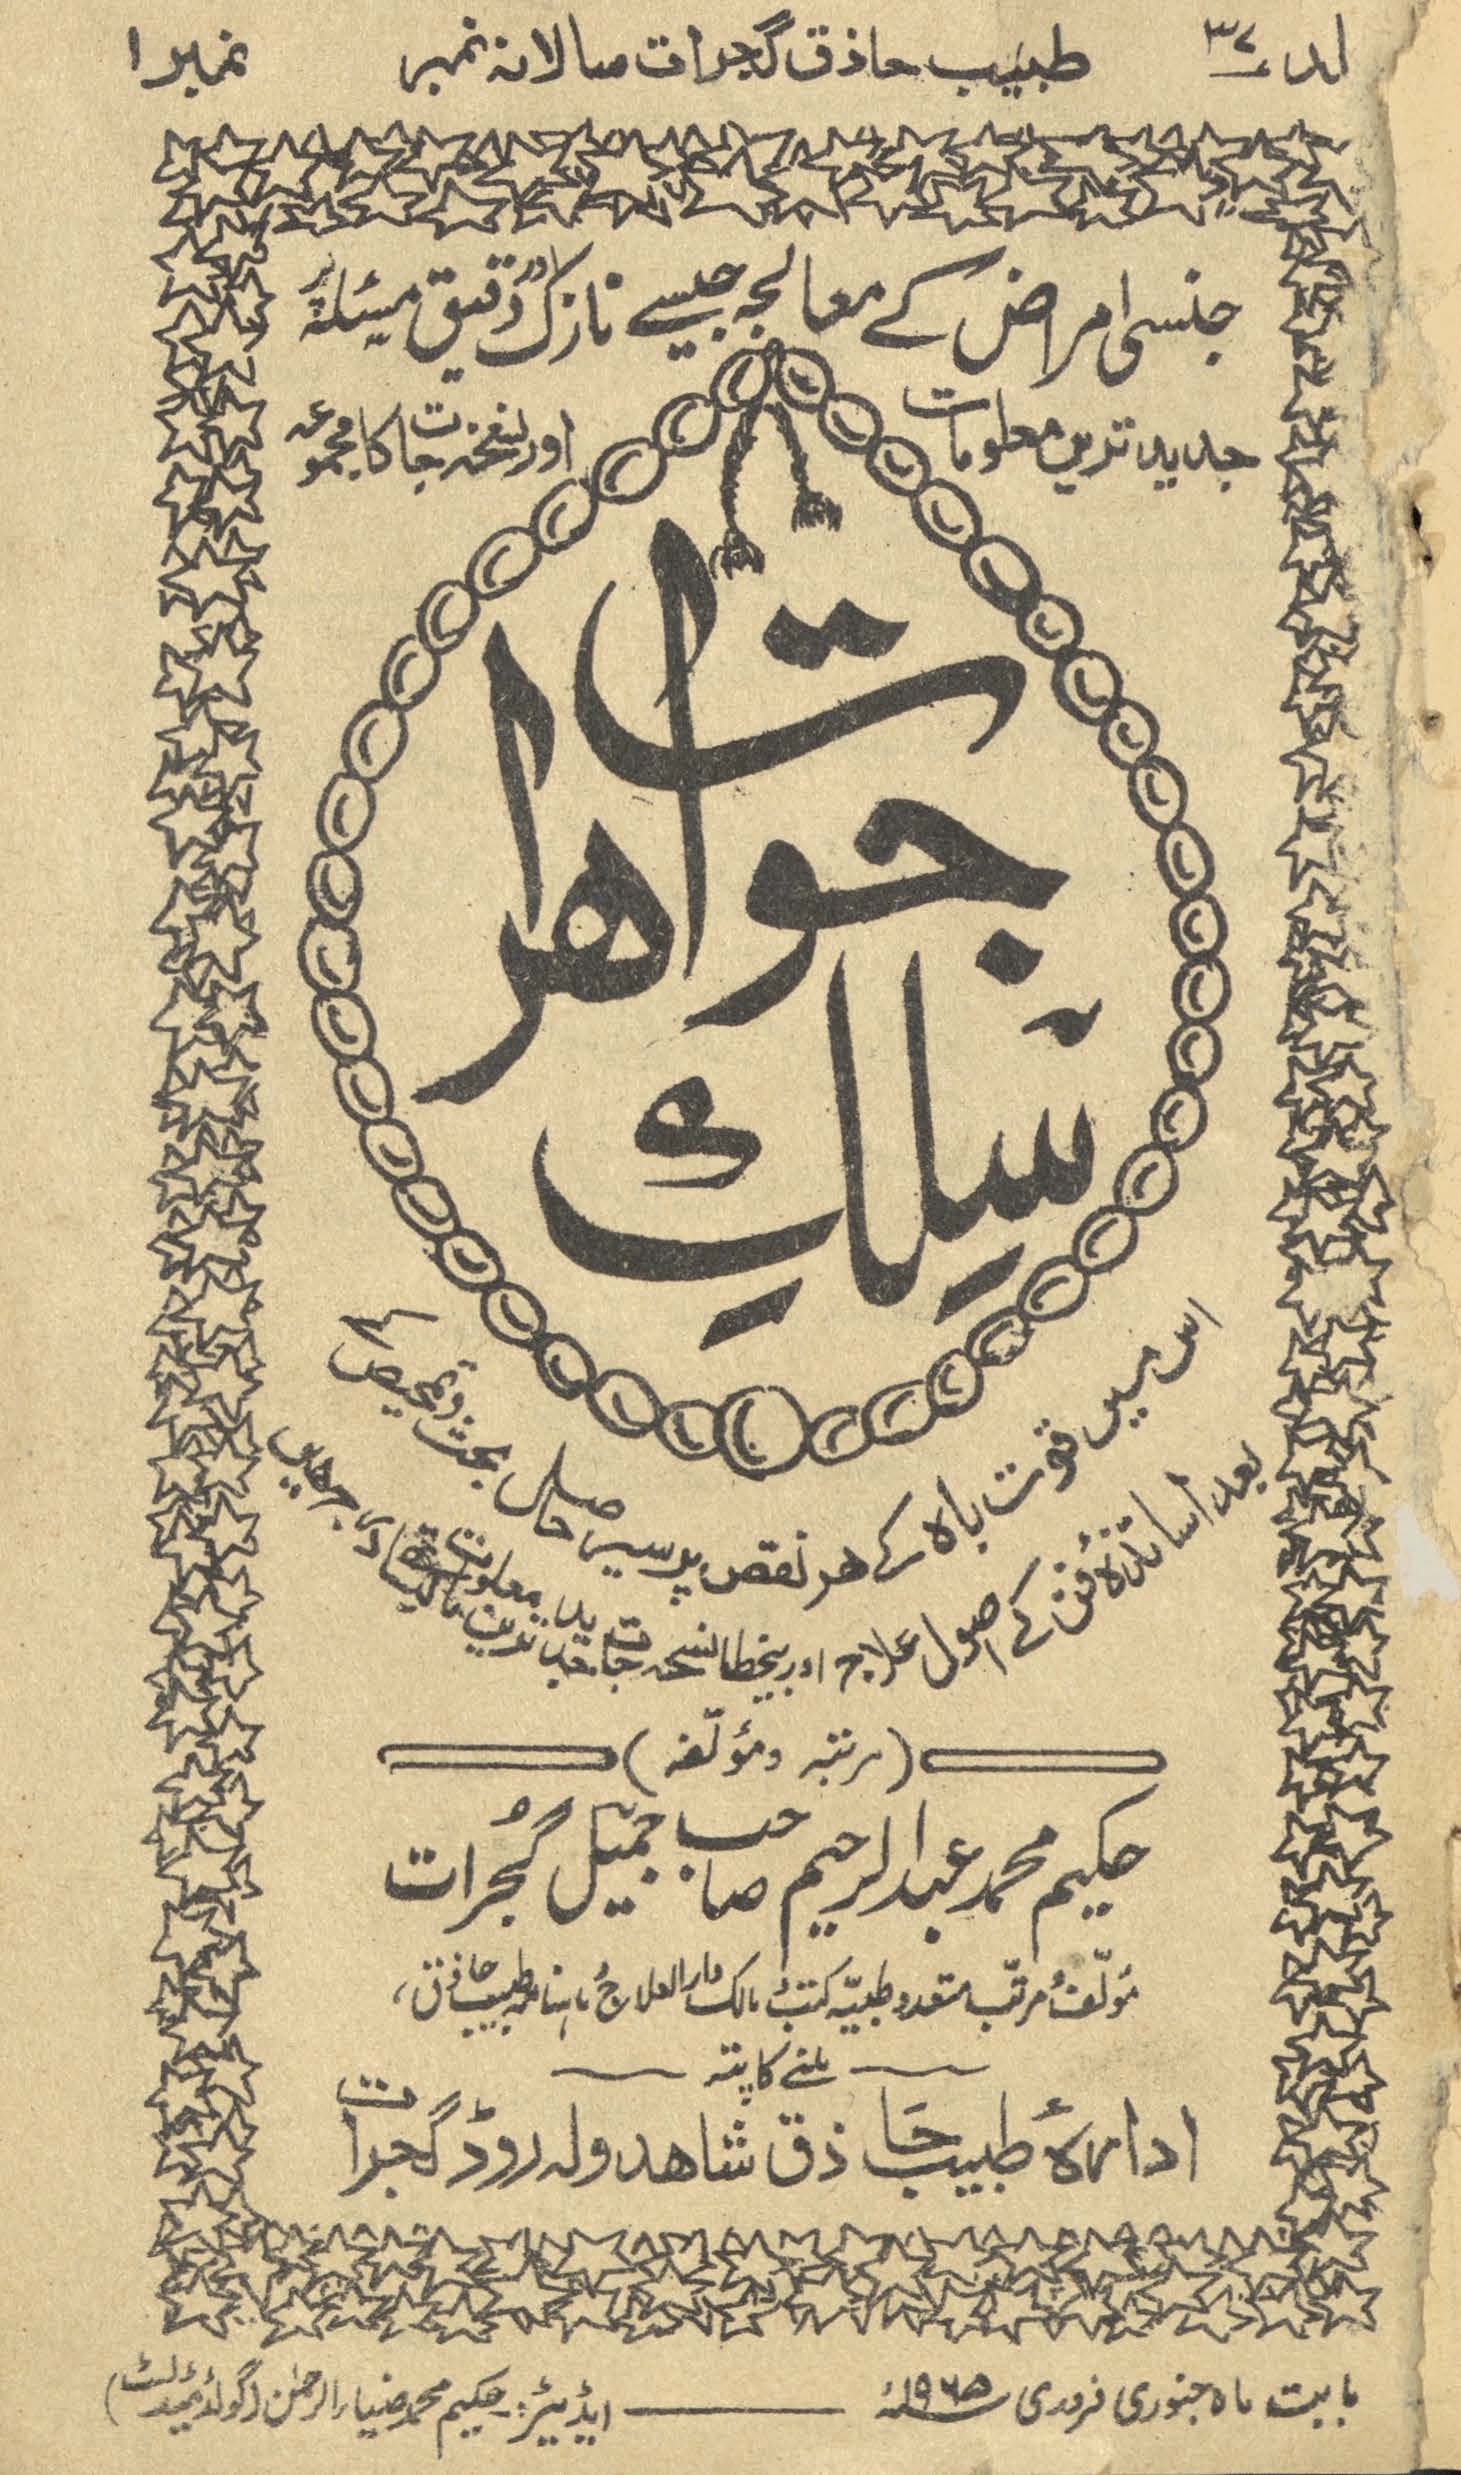 لد ۳۷ طبیب حاذق گجرات سالانہ نمبر نمبر ۱
جنسی امراض کے معالجہ جیسے نازک اور دقیق مسئلہ پر
جدید ترین معلومات اور نسخہ جات کا مجموعہ
سلک
جواہرات
اس میں قوت باہ کے ہر نقص پر سیر حاصل بحث و تمحیص کے
بعد اساتذۂ فن کے اصول علاج اور بیخطا نسخہ جات جدید ترین معلومات
(مرتبہ و مؤلفہ)
حکیم محمد عبدالرحیم صاحب جمیل گجرات
مؤلف و مرتب متعدد طبیّہ کتب و مالک دارالعلاج و ماہنامہ طبیب حاذق،
ملنے کا پتہ
ادارۂ طبیب حاذق شاہدولہ روڈ گجرات
بابت ماہ جنوری فروری ۱۹۶۵ء ایڈیٹر:۔ حکیم محمد ضیاء الرحمٰن (گولڈ میڈلسٹ)